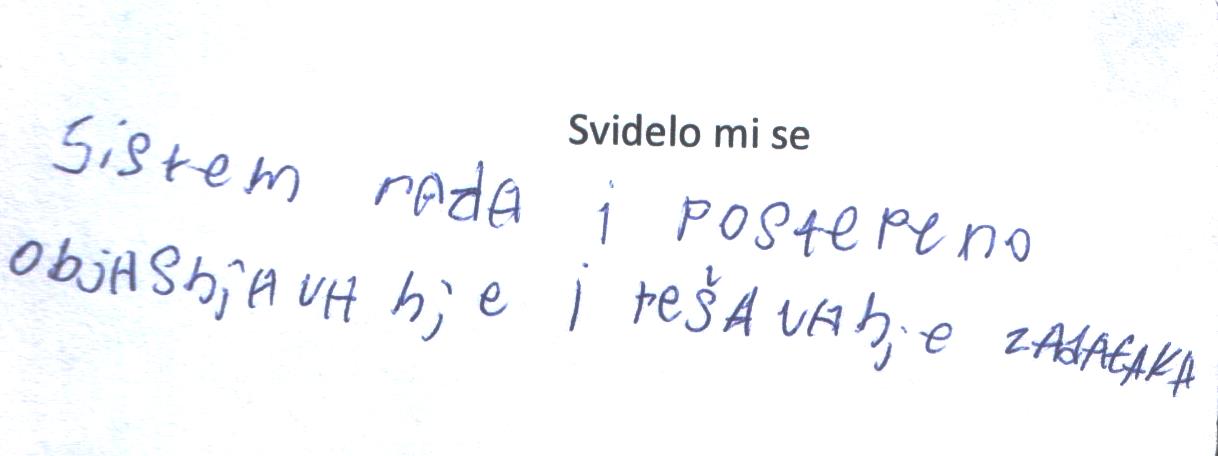 Svidelo mi se
Sistem rada i postepeno
objašnjavanje i rešavanje zadataka